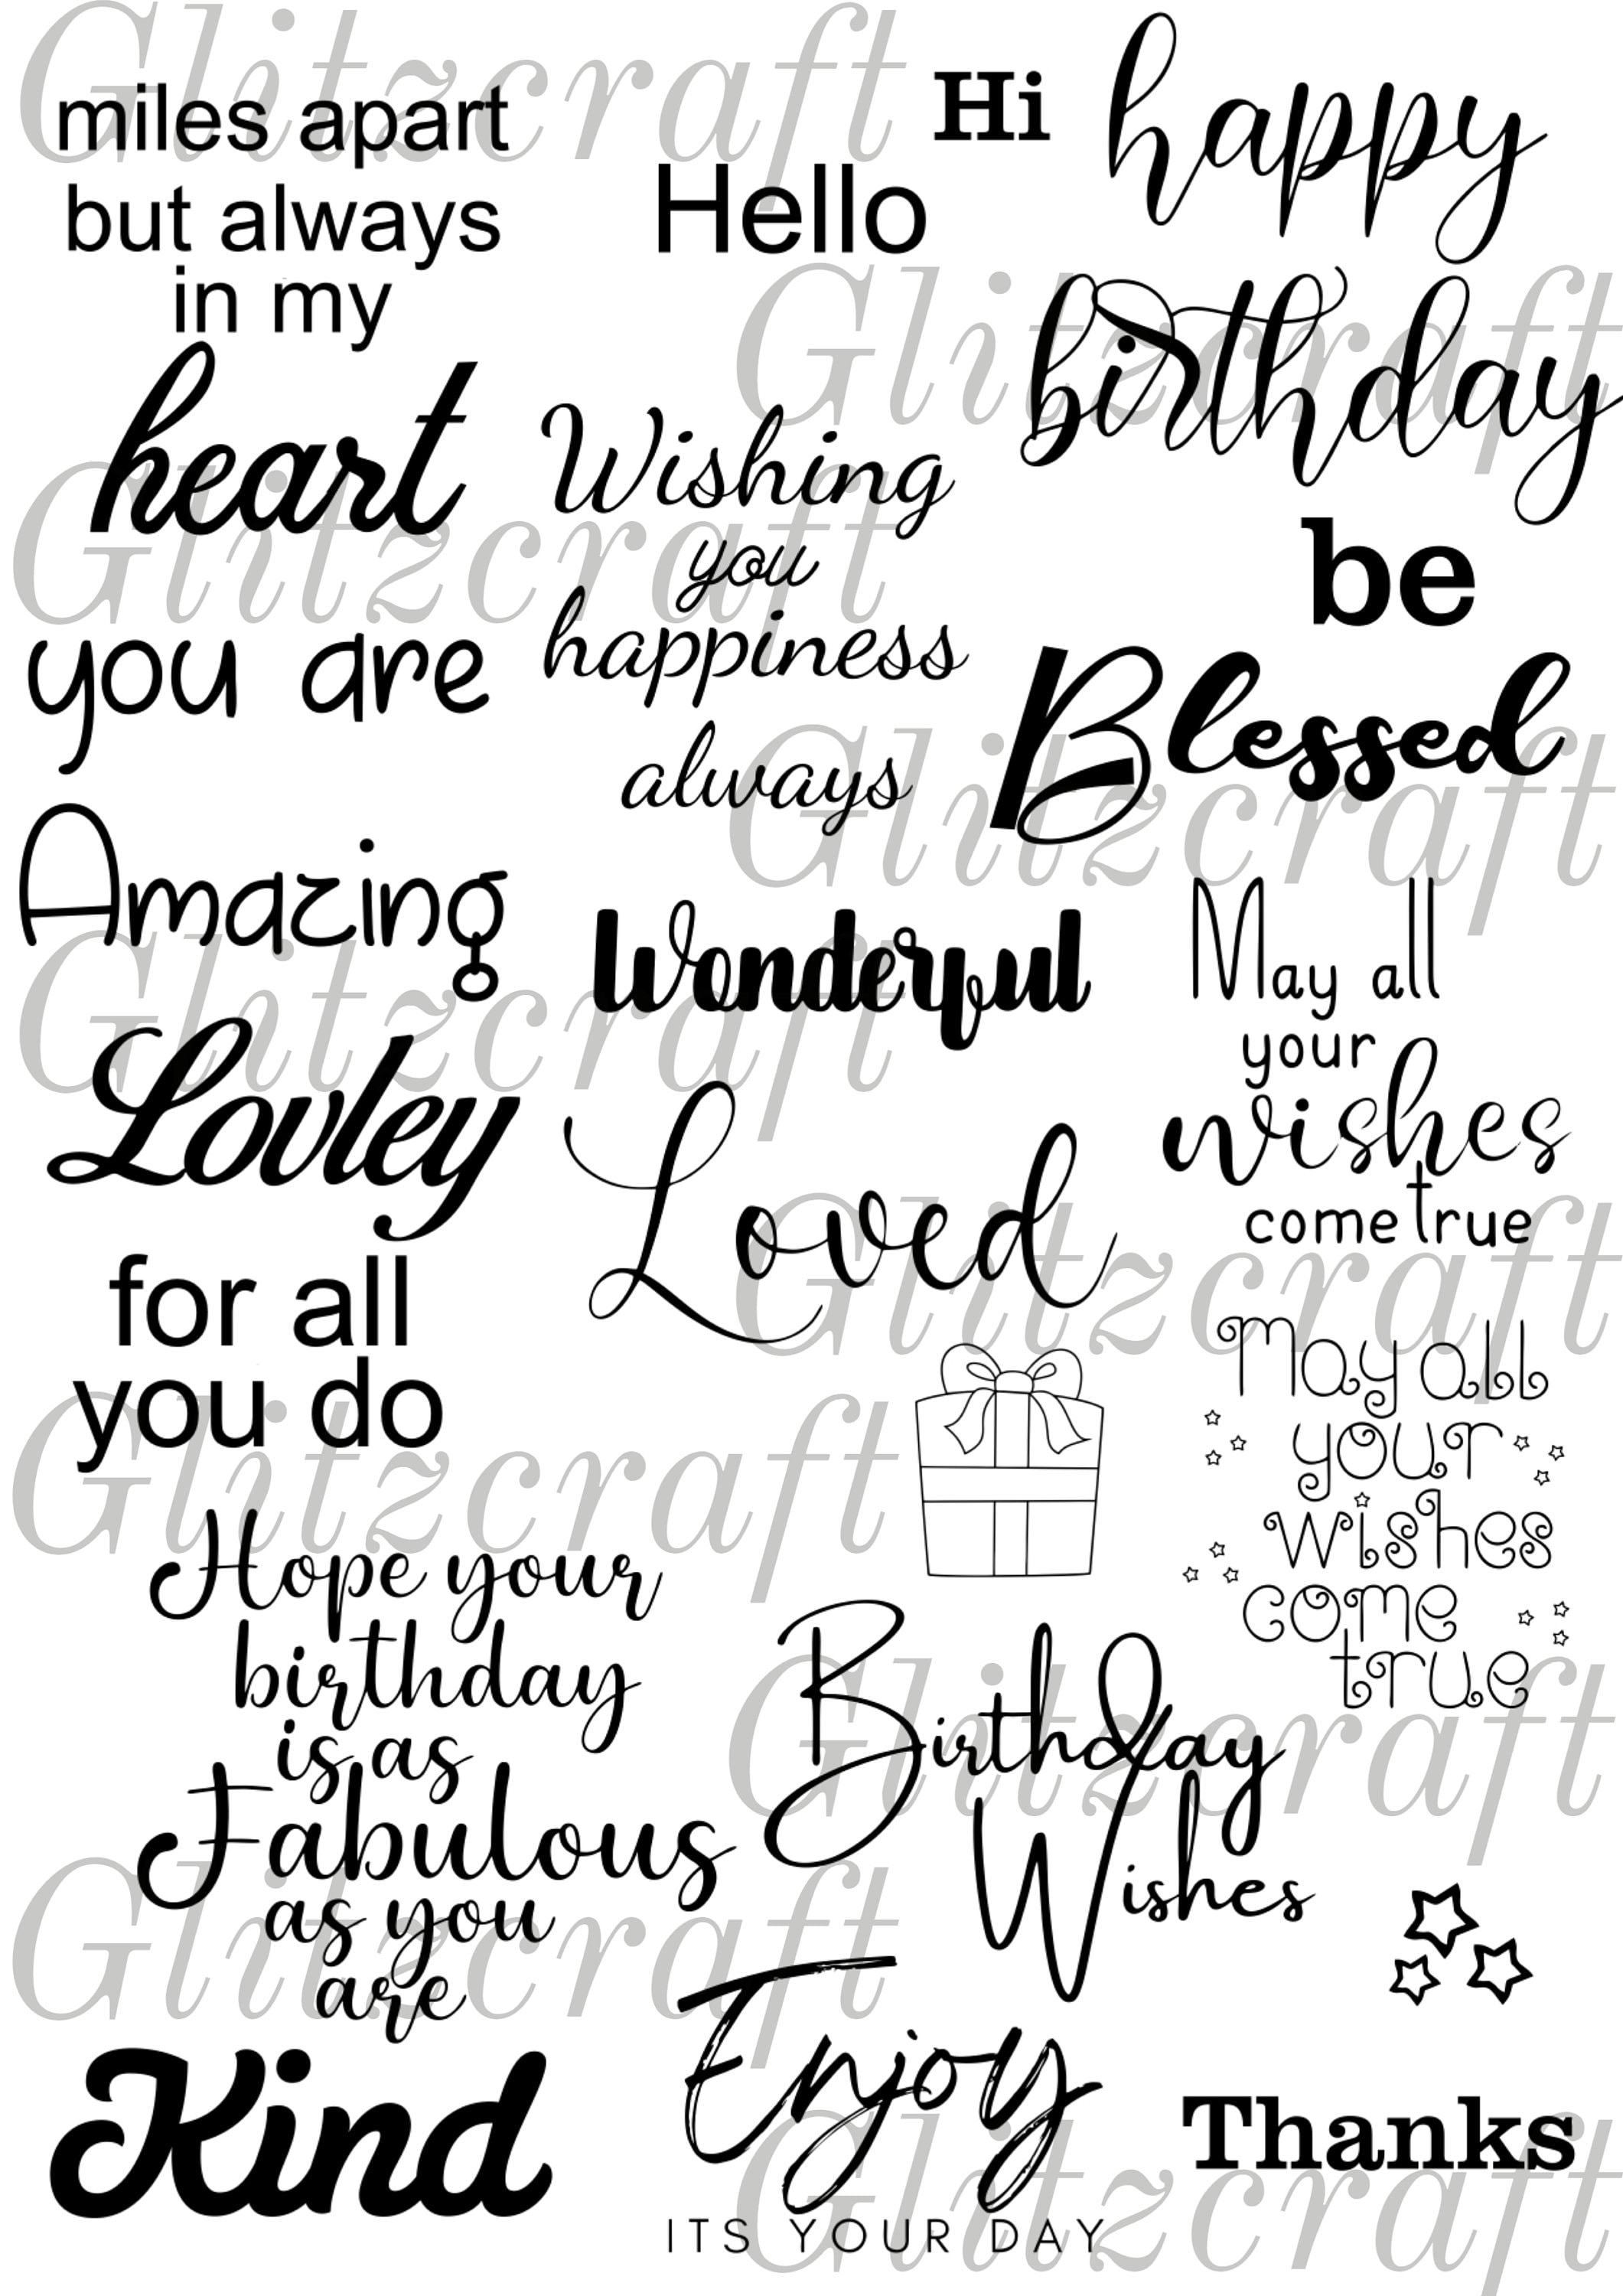 miles apart
but always
in my
heart
you are
Amazing
Lovley
for all
you do
Hope your
birthday
is as
Fabulous
as you
are
Kind
Hello
Wishing
you
happiness
always
Wonderful
Loved
Birthday
Wishes
Enjoy
ITS YOUR DAY
Hi
happy
birthday
be
Blessed
May all
your
wishes
come true
May all
your
wishes
come
true
Thanks
Glitzcraft
Glitzcraft
Glitzcraft
Glitzcraft
Glitzcraft
Glitzcraft
Glitzcraft
Glitzcraft
Glitzcraft
Glitzcraft